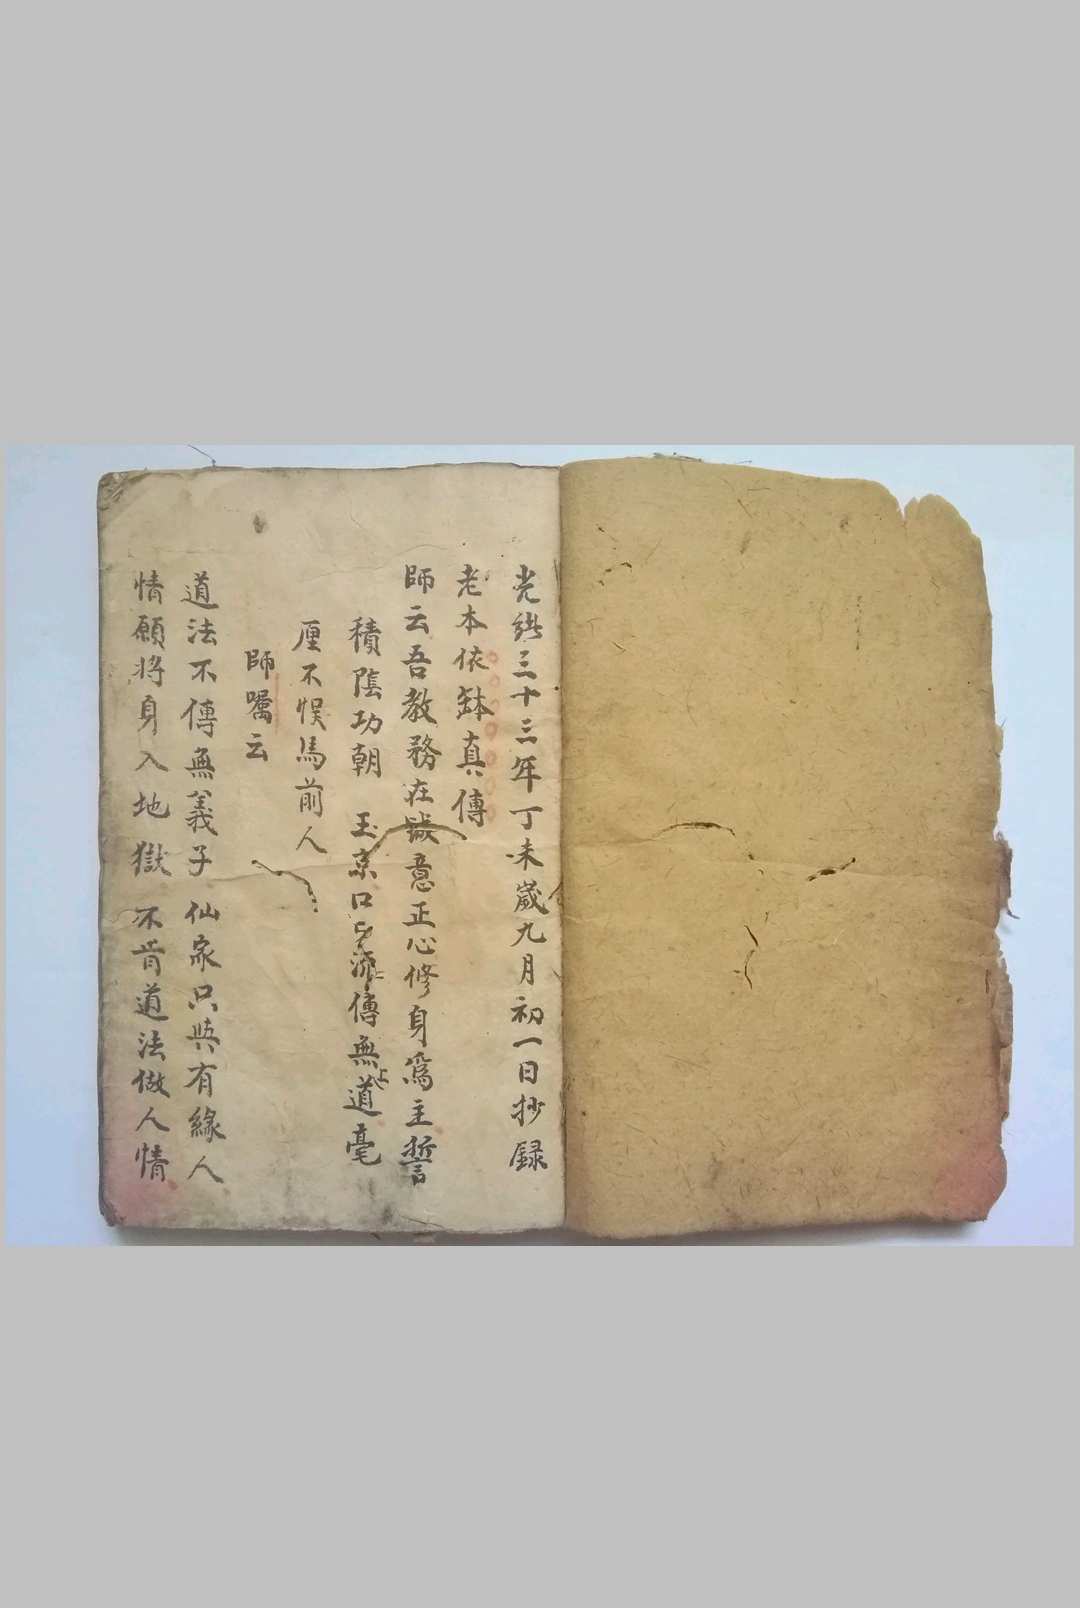 光緒三十三年丁未歲九月初一日抄録
老本依缽真傳
師云吾教務在誠意正心修身爲主誓
積陰功朝 玉京口 流傳無道毫
厘不悮馬前人
師囑云
道法不傳無義子 仙家只與有緣人
情願將身入地獄 不肯道法做人情